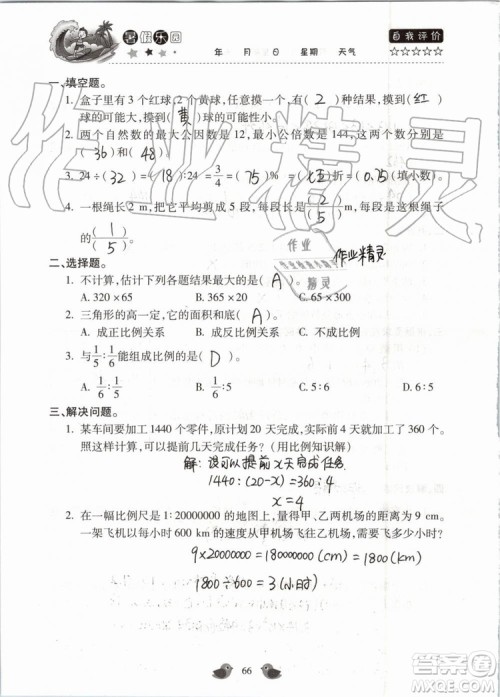 暑假乐园
年 月 日 星期 天气
自我评价
☆☆☆☆☆
一、填空题。
1. 盒子里有 3 个红球,2 个黄球,任意摸一个,有( 2 )种结果,摸到( 红 )
球的可能大,摸到( 黄 )球的可能性小。
2. 两个自然数的最大公因数是 12,最小公倍数是 144,这两个数分别是
( 36 )和( 48 )。
3. 24÷( 32 )=( 18 ):24=3/4=( 75 )%=( 七五 )折=( 0.75 )(填小数)。
4. 一根绳长 2 m,把它平均剪成 5 段,每段长( 2/5 )m,每段是这根绳子
的( 1/5 )。
二、选择题。
1. 不计算,估计下列各题结果最大的是( A )。
A. 320×65 B. 365×20 C. 65×300
2. 三角形的高一定,它的面积和底( A )。
A. 成正比例关系 B. 成反比例关系 C. 不成比例关系
3. 与1/5:1/6能组成比例的是( D )
A. 1/6:1/5 B. 1/6:5 C. 5:6 D. 6:5
三、解决问题。
1. 某车间要加工 1440 个零件,原计划 20 天完成,实际前 4 天加工了 360 个。
照这样计算,可以提前几天完成任务?(用比例知识解)
解:设可以提前x天完成任务
1440:(20-x)=360:4
x=4
2. 在一幅比例尺是 1:20000000 的地图上,量得甲、乙两机场的距离为 9 cm。
一架飞机以每小时 600 km 的速度从甲机场飞往乙机场,需要飞多少小时?
9×20000000=180000000(cm)=1800(km)
1800÷600=3(小时)
66
作业精灵
作业
精灵
作业精灵